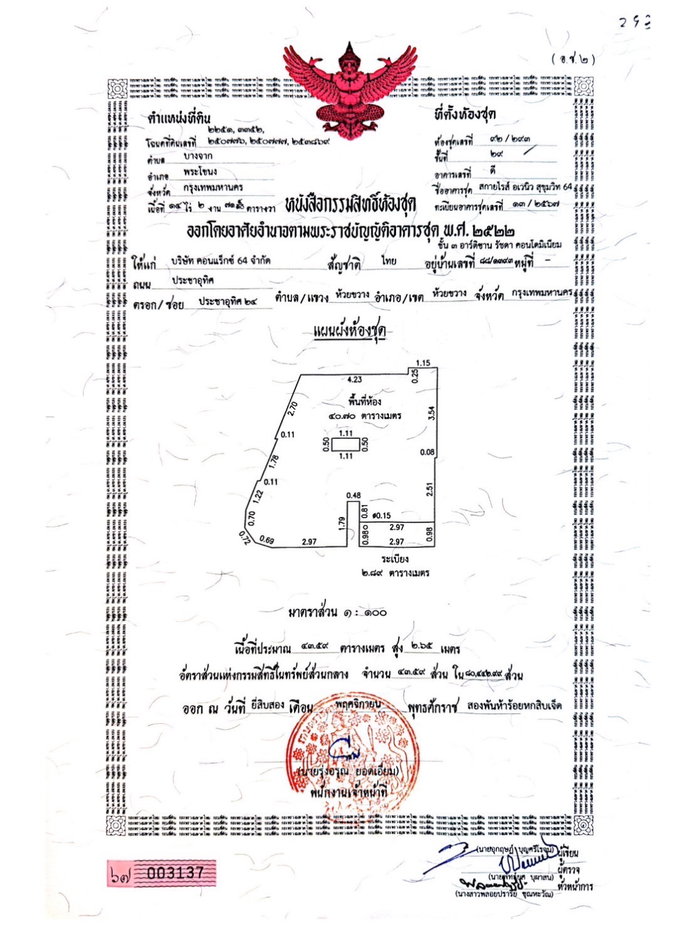 293
( อ.ช.๒ )
ตำแหน่งที่ดิน
๒๒๕๑, ๓๓๕๒,
โฉนดที่ดินเลขที่ ๒๕๐๗๗๖, ๒๕๐๗๗๗, ๒๕๓๘๖๙
ตำบล บางจาก
อำเภอ พระโขนง
จังหวัด กรุงเทพมหานคร
เนื้อที่ ๑๔ ไร่ ๒ งาน ตารางวา
ที่ตั้งห้องชุด
ห้องชุดเลขที่ ๙๒/๒๙๓
ชั้นที่ ๒๙
อาคารเลขที่ ดี
ชื่ออาคารชุด สกายไรส์ อเวนิว สุขุมวิท 64
ทะเบียนอาคารชุดเลขที่ ๑๓/๒๕๖๗
หนังสือกรรมสิทธิ์ห้องชุด
ออกโดยอาศัยอำนาจตามพระราชบัญญัติอาคารชุด พ.ศ. ๒๕๒๒
ชั้น ๓ อาร์ติซาน รัชดา คอนโดมิเนียม
ให้แก่ บริษัท คอนแร็กซ์ 64 จำกัด สัญชาติ ไทย อยู่บ้านเลขที่ ๘๘/๑๓๙๓ หมู่ที่ -
ถนน ประชาอุทิศ
ตรอก/ซอย ประชาอุทิศ ๒๔ ตำบล/แขวง ห้วยขวาง อำเภอ/เขต ห้วยขวาง จังหวัด กรุงเทพมหานคร
แผนผังห้องชุด
1.15
4.23
0.25
2.70
พื้นที่ห้อง
๔๐.๗๐ ตารางเมตร
3.54
0.11
1.11
0.50
0.50
1.11
0.08
1.78
0.11
1.22
2.51
0.48
0.70
0.81
0.15
1.79
2.97
0.72
0.69
2.97
0.98
2.97
0.98
ระเบียง
๒.๘๙ ตารางเมตร
มาตราส่วน ๑ : ๑๐๐
เนื้อที่ประมาณ ๔๓.๕๙ ตารางเมตร สูง ๒.๖๕ เมตร
อัตราส่วนแห่งกรรมสิทธิ์ในทรัพย์ส่วนกลาง จำนวน ๔๓.๕๙ ส่วน ใน ๘๐,๔๕๒.๙๙ ส่วน
ออก ณ วันที่ ยี่สิบสอง เดือน พฤศจิกายน พุทธศักราช สองพันห้าร้อยหกสิบเจ็ด
(นายรุ่งอรุณ ยอดเอี่ยม)
พนักงานเจ้าหน้าที่
๖๗ 003137
ผู้เขียน
ผู้ตรวจ
หัวหน้าการ